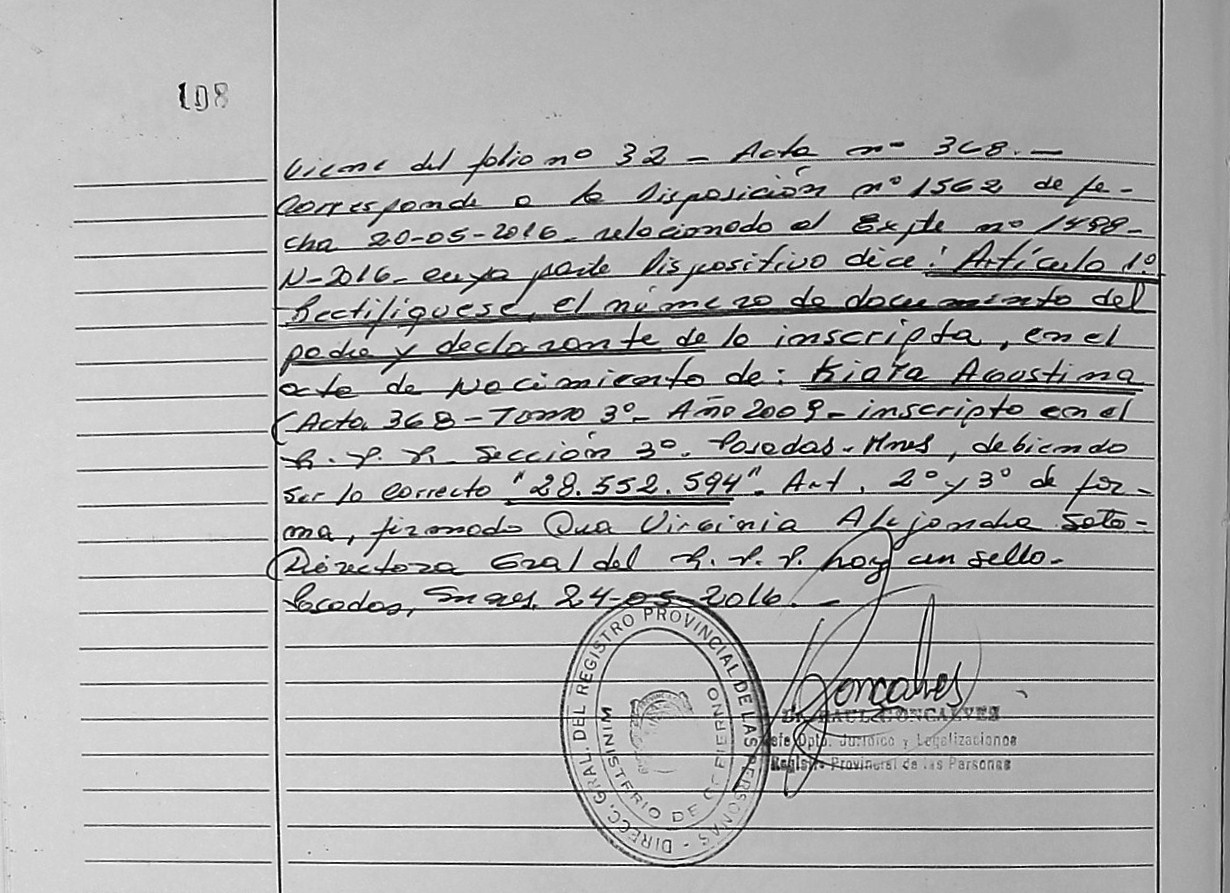 108
Viene del folio nº 32 - Acta nº 368. -
Corresponde a la Disposición nº 1562 de fe-
cha 20-05-2016 - relacionado al Expte nº 1498-
N-2016 - cuya parte Dispositiva dice: Artículo 1º
Rectifíquese, el número de documento del
padre y declarante de la inscripta, en el
acta de Nacimiento de: Kiara Agustina
(Acta 368 - Tomo 3º - Año 2009 - inscripta en el
R.P.P. Sección 3º. Posadas - Mnes, debiendo
ser lo correcto "28.552.594". Art. 2º y 3º de for-
ma, firmado Virginia Alejandra Soto -
Directora Gral del R.P.P. hay un sello -
Posadas, Mnes, 24-05-2016. -
DIRECC. GRAL. DEL REGISTRO PROVINCIAL DE LAS PERSONAS -
MINISTERIO DE GOBIERNO
Goncalves
Dr. RAUL GONCALVES
Jefe Dpto. Jurídico y Legalizaciones
Registro Provincial de las Personas